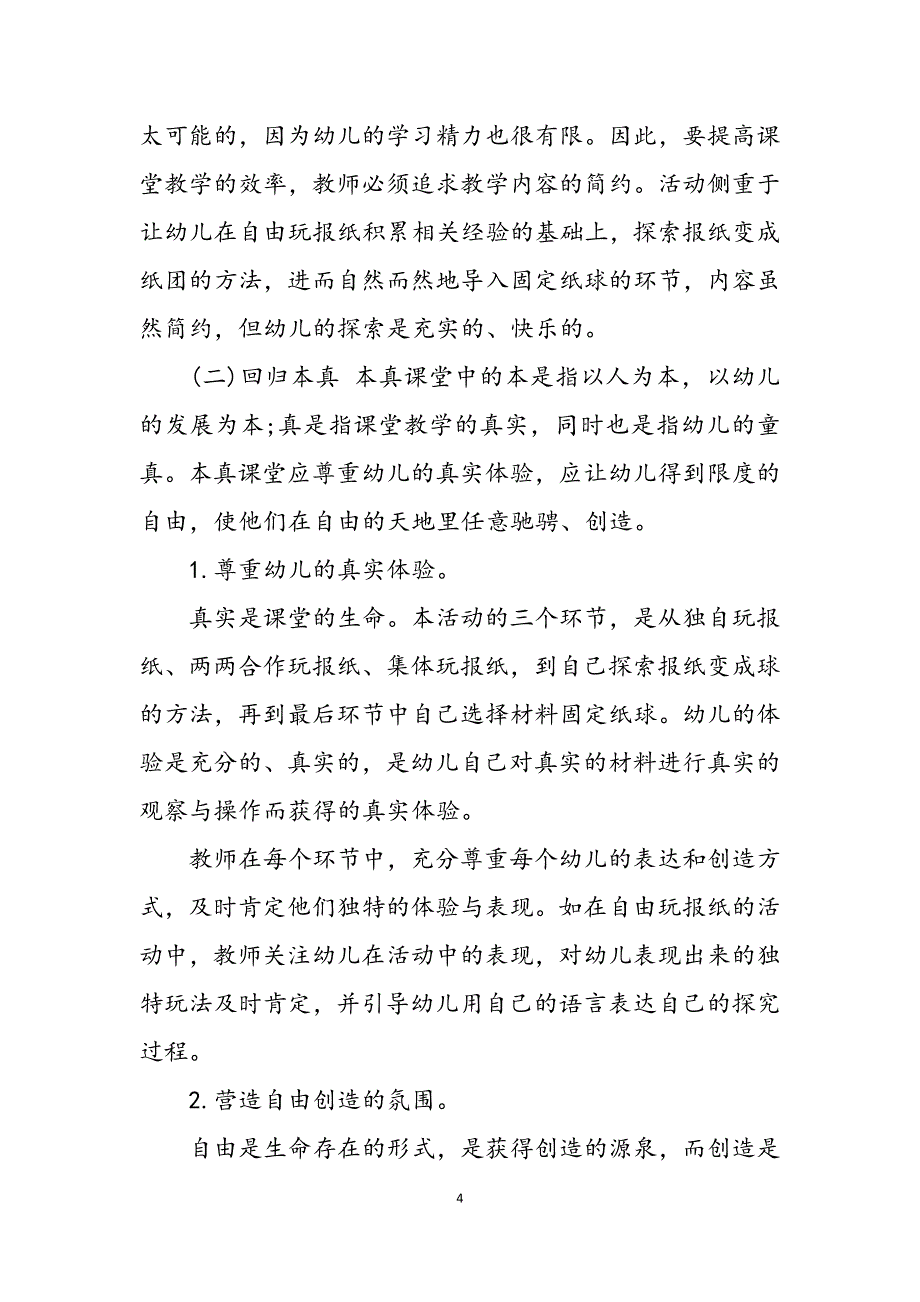 太可能的，因为幼儿的学习精力也很有限。因此，要提高课
堂教学的效率，教师必须追求教学内容的简约。活动侧重于
让幼儿在自由玩报纸积累相关经验的基础上，探索报纸变成
纸团的方法，进而自然而然地导入固定纸球的环节，内容虽
然简约，但幼儿的探索是充实的、快乐的。
(二)回归本真 本真课堂中的本是指以人为本，以幼儿
的发展为本;真是指课堂教学的真实，同时也是指幼儿的童
真。本真课堂应尊重幼儿的真实体验，应让幼儿得到限度的
自由，使他们在自由的天地里任意驰骋、创造。
1.尊重幼儿的真实体验。
真实是课堂的生命。本活动的三个环节，是从独自玩报
纸、两两合作玩报纸、集体玩报纸，到自己探索报纸变成球
的方法，再到最后环节中自己选择材料固定纸球。幼儿的体
验是充分的、真实的，是幼儿自己对真实的材料进行真实的
观察与操作而获得的真实体验。
教师在每个环节中，充分尊重每个幼儿的表达和创造方
式，及时肯定他们独特的体验与表现。如在自由玩报纸的活
动中，教师关注幼儿在活动中的表现，对幼儿表现出来的独
特玩法及时肯定，并引导幼儿用自己的语言表达自己的探究
过程。
2.营造自由创造的氛围。
自由是生命存在的形式，是获得创造的源泉，而创造是
4